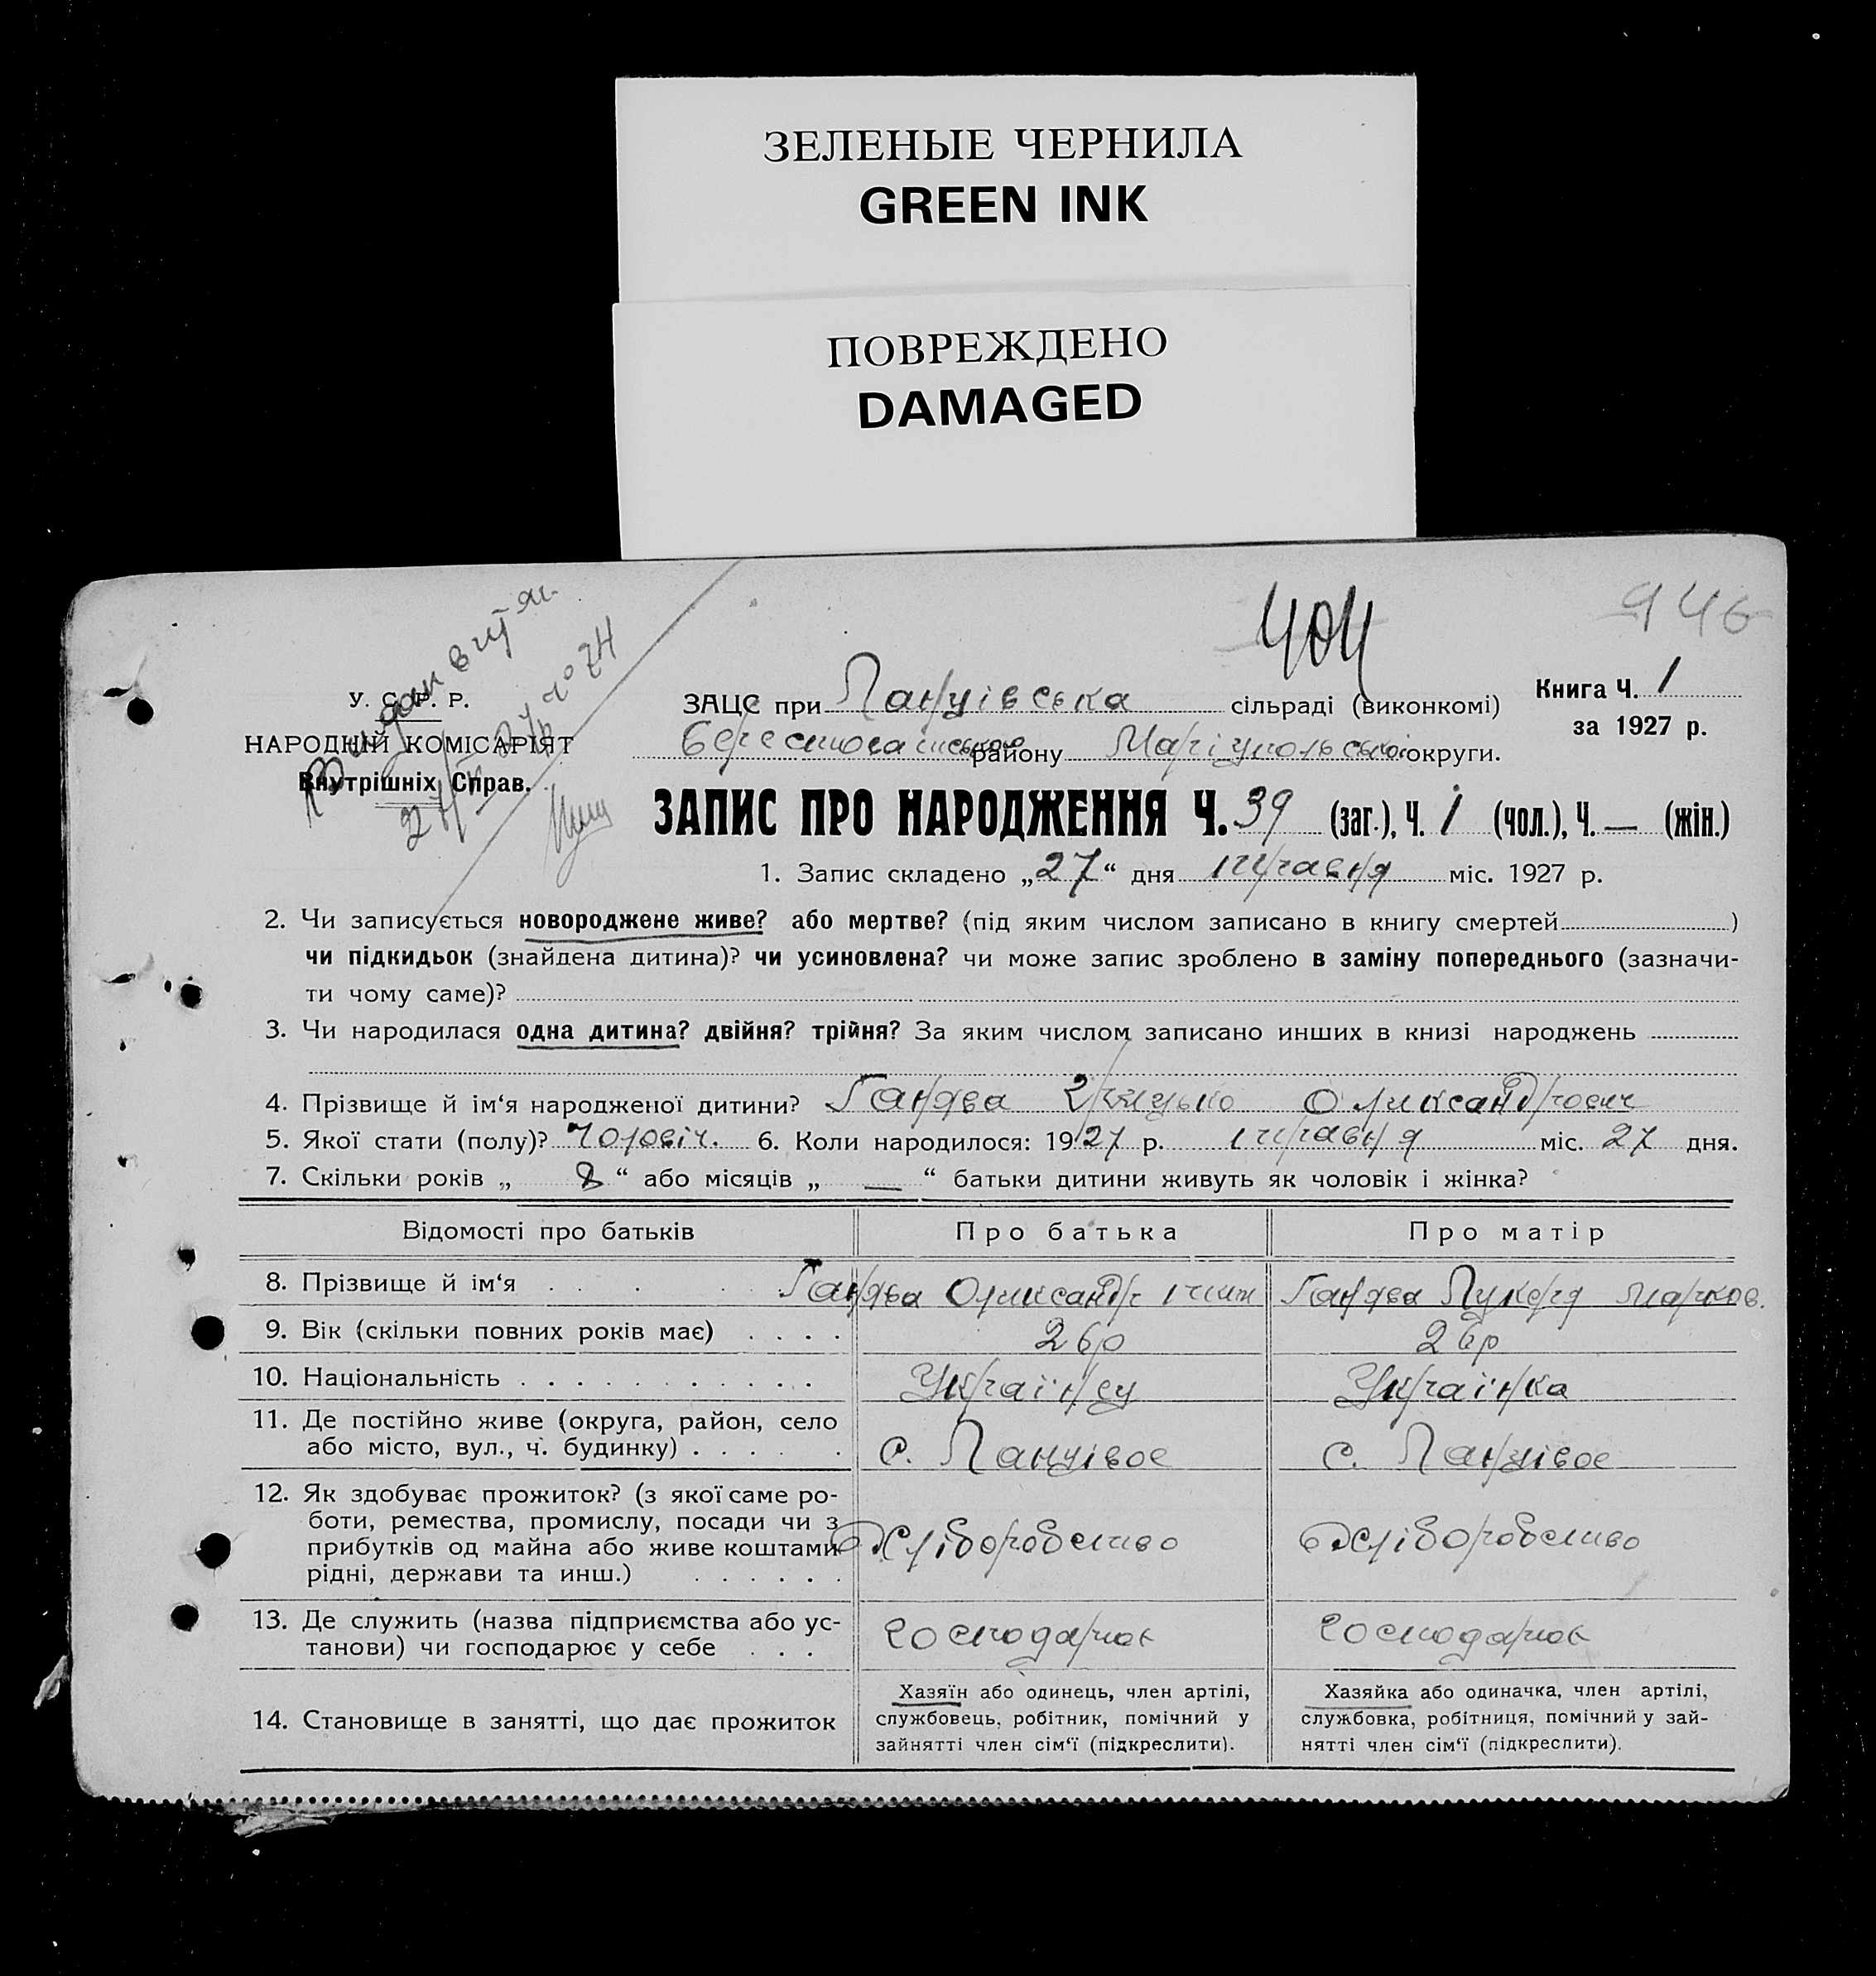 ЗЕЛЕНЫЕ ЧЕРНИЛА
GREEN INK
ПОВРЕЖДЕНО
DAMAGED
404
946
У. С. Р. Р.
НАРОДНІЙ КОМІСАРІЯТ
Внутрішніх Справ.
ЗАЦС при Ланцівська сільраді (виконкомі)
района Маріупольської округи.
Книга Ч. 1
за 1927 р.
ЗАПИС ПРО НАРОДЖЕННЯ Ч. 39 (заг.), Ч. 1 (чол.), Ч. — (жін.)
1. Запис складено „27“ дня травня міс. 1927 р.
2. Чи записується новороджене живе? або мертве? (під яким числом записано в книгу смертей )
чи підкидьок (знайдена дитина)? чи усиновлена? чи може запис зроблено в заміну попереднього (зазначи-
ти чому саме)?
3. Чи народилася одна дитина? двійня? трійня? За яким числом записано инших в книзі народжень
4. Прізвище й ім‘я народженої дитини? Ганзва
5. Якої стати (полу)? чоловіч. 6. Коли народилося: 1927 р. травня міс. 27 дня.
7. Скільки років „ 8 “ або місяців „ — “ батьки дитини живуть як чоловік і жінка?
Відомості про батьків Про батька Про матір
8. Прізвище й ім‘я
9. Вік (скільки повних років має) 26р 26р
10. Національність Українец Українка
11. Де постійно живе (округа, район, село
або місто, вул., ч. будинку) с. Ланцівое с. Ланцівое
12. Як здобуває прожиток? (з якої саме ро-
боти, ремества, промислу, посади чи з
прибутків од майна або живе коштами
рідні, держави та инш.) хліборобство хліборобство
13. Де служить (назва підприємства або ус-
танови) чи господарює у себе господарює господарює
14. Становище в занятті, що дає прожиток
Хазяїн або одинець, член артілі,
службовець, робітник, помічний у
зайнятті член сім‘ї (підкреслити).
Хазяйка або одиначка, член артілі,
службовка, робітниця, помічний у зай-
нятті член сім‘ї (підкреслити).